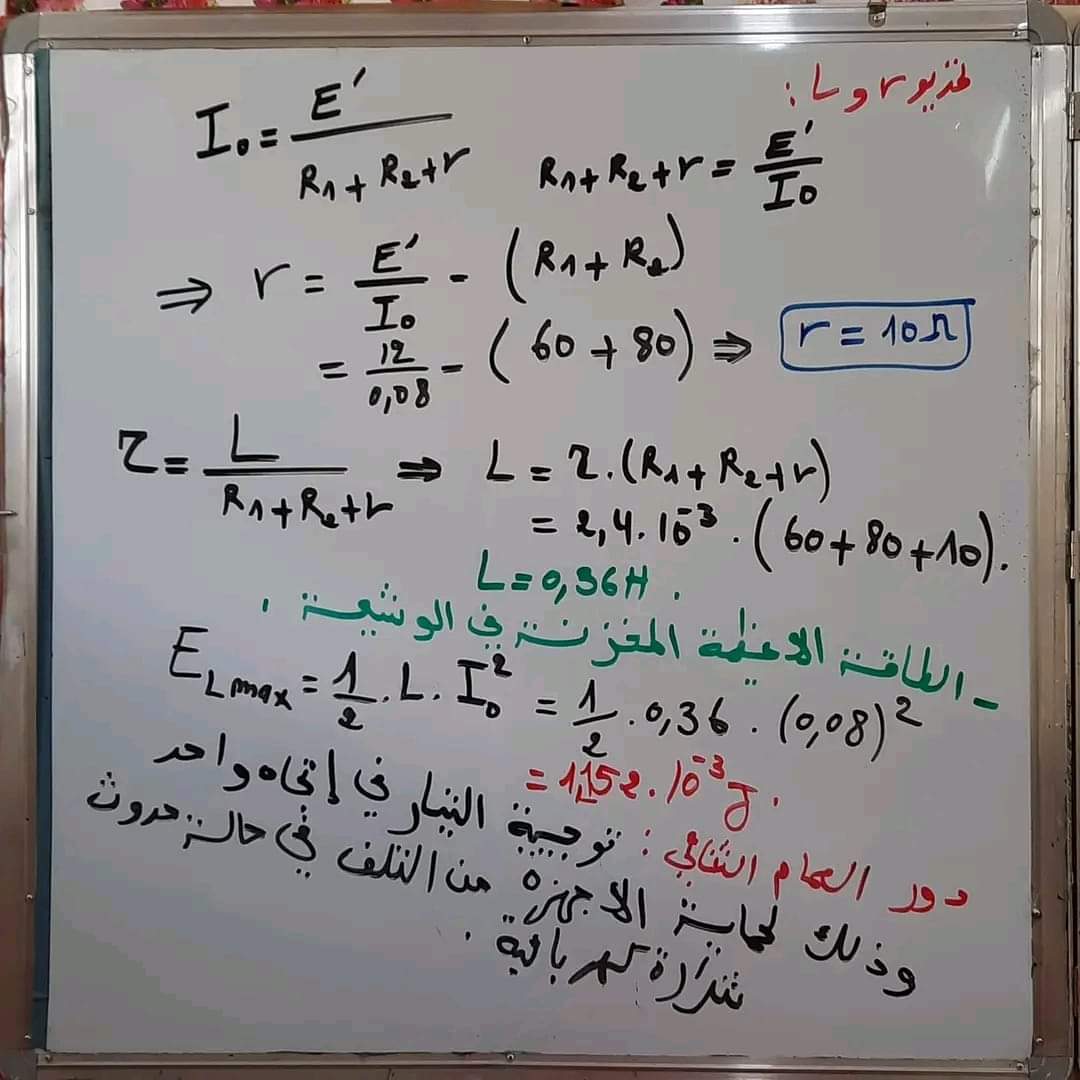 تحديد r و L :
I₀ = E' / (R₁ + R₂ + r)    R₁ + R₂ + r = E' / I₀
⇒ r = E' / I₀ - (R₁ + R₂)
= 12 / 0,08 - (60 + 80) ⇒ r = 10Ω
τ = L / (R₁ + R₂ + r) ⇒ L = τ . (R₁ + R₂ + r)
= 2,4 . 10⁻³ . (60 + 80 + 10) .
L = 0,36H .
- الطاقة الاعظمية المخزنة في الوشيعة .
E_Lmax = 1/2 . L . I₀² = 1/2 . 0,36 . (0,08)²
= 1,152 . 10⁻³ J .
دور الصمام الثنائي : توجيه التيار في إتجاه واحد
وذلك لحماية الاجهزة من التلف في حالة حدوث
شرارة كهربائية .